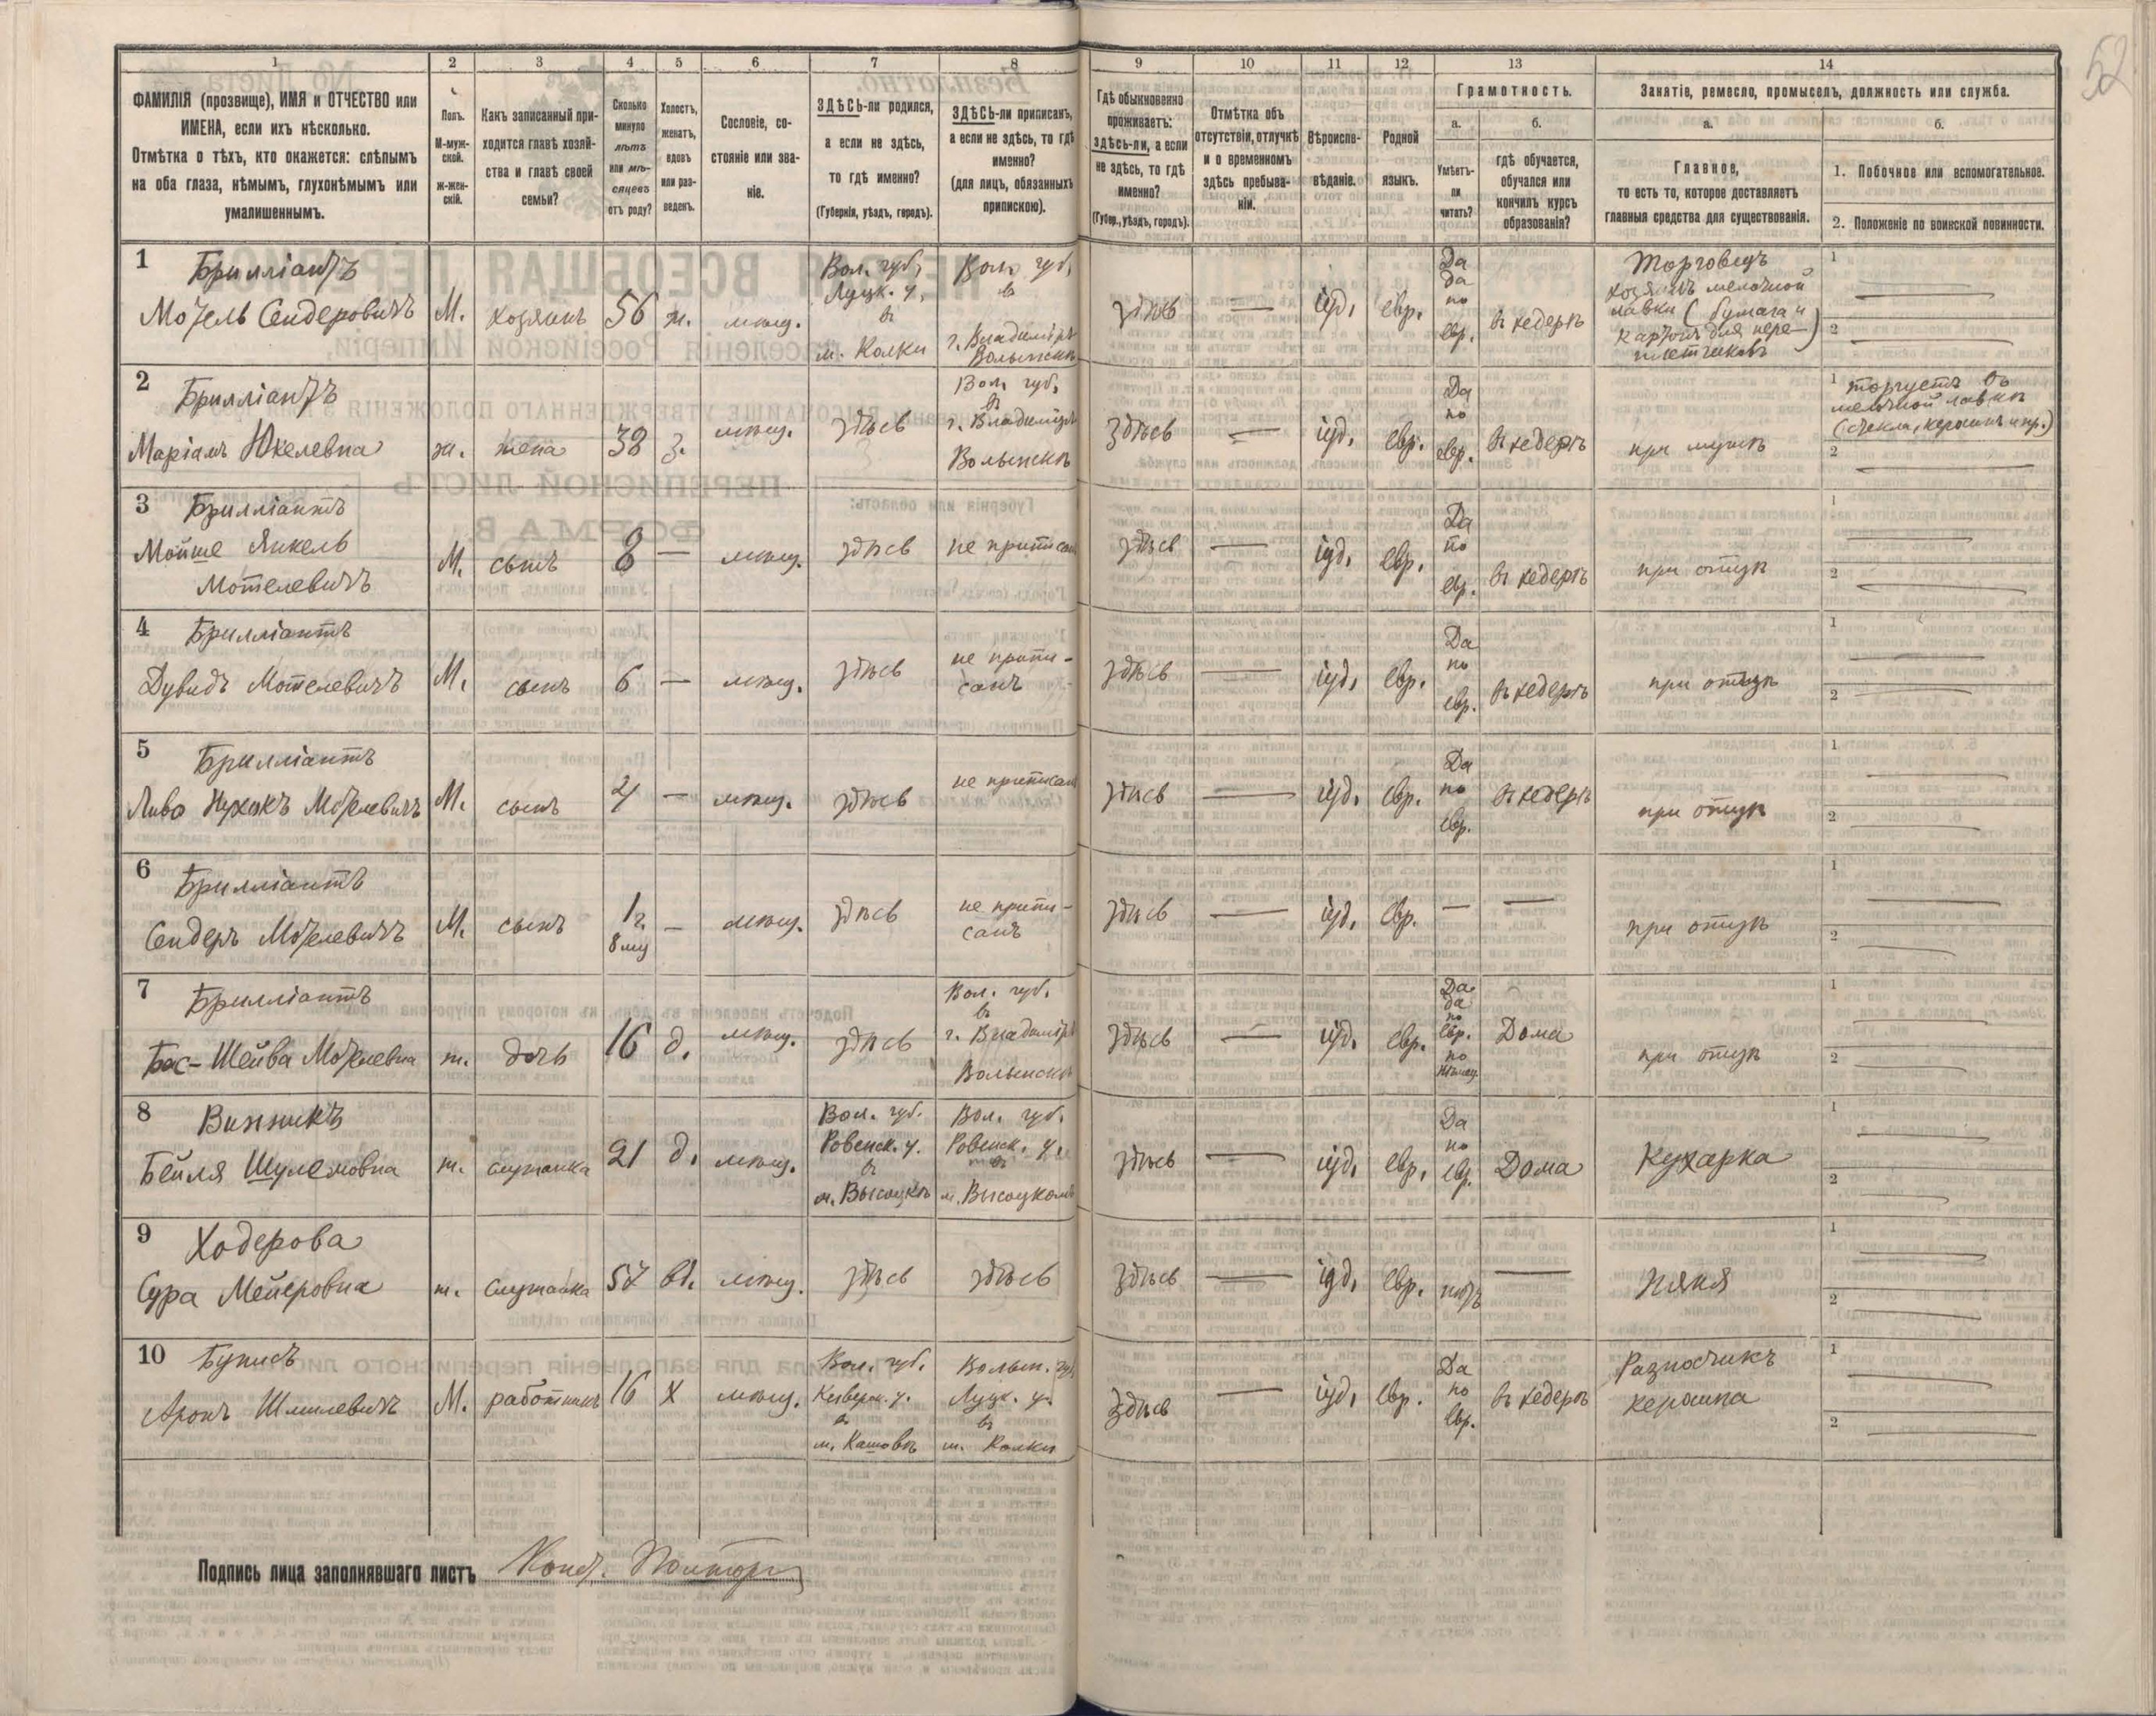 52
1 2 3 4 5 6 7 8 9 10 11 12 13 14
ФАМИЛІЯ (прозвище), ИМЯ и ОТЧЕСТВО или
ИМЕНА, если ихъ нѣсколько.
Отмѣтка о тѣхъ, кто окажется: слѣпымъ
на оба глаза, нѣмымъ, глухонѣмымъ или
умалишеннымъ.
Полъ.
М-муж-
ской.
ж-жен-
скій.
Какъ записанный при-
ходится главѣ хозяй-
ства и главѣ своей
семьи?
Сколько
минуло
лѣтъ
или мѣ-
сяцевъ
отъ роду?
Холостъ,
женатъ,
вдовъ
или раз-
веденъ.
Сословіе, со-
стояніе или зва-
ніе.
ЗДѢСЬ-ли родился,
а если не здѣсь,
то гдѣ именно?
(Губернія, уѣздъ, городъ).
ЗДѢСЬ-ли приписанъ,
а если не здѣсь, то гдѣ
именно?
(для лицъ, обязанныхъ
припискою).
Гдѣ обыкновенно
проживаетъ:
здѣсь-ли, а если
не здѣсь, то гдѣ
именно?
(Губер., уѣздъ, городъ).
Отмѣтка объ
отсутствіи, отлучкѣ
и о временномъ
здѣсь пребыва-
ніи.
Вѣроиспо-
вѣданіе.
Родной
языкъ.
Грамотность.
а.
Умѣетъ-
ли
читать?
б.
гдѣ обучается,
обучался или
кончилъ курсъ
образованія?
Занятіе, ремесло, промыселъ, должность или служба.
а.
Главное,
то есть то, которое доставляетъ
главныя средства для существованія.
б.
1. Побочное или вспомогательное.
2. Положеніе по воинской повинности.
1 Брилліантъ
Мотель Сендеровичъ
М.
хозяинъ
56
ж.
мѣщ.
Вол. губ.
Луцк. у.
въ
м. Колки
Вол. губ.
въ
г. Владимірѣ
Волынскѣ
здѣсь
—
іуд.
евр.
Да
да
по
евр.
въ хедерѣ
Торговецъ
хозяинъ мелочной
лавки (бумага и
картонъ для пере-
плетчиковъ)
1 —
2 —
2 Брилліантъ
Маріамъ Юкелевна
ж.
жена
38
з.
мѣщ.
здѣсь
Вол. губ.
въ
г. Владимірѣ
Волынскѣ
здѣсь
—
іуд.
евр.
Да
по
евр.
въ хедерѣ
при мужѣ
1 торгуетъ въ
мелочной лавкѣ
(стекла, керосинъ и пр.)
2 —
3 Брилліантъ
Мойше Янкель
Мотелевичъ
М.
сынъ
8
—
мѣщ.
здѣсь
не приписанъ
здѣсь
—
іуд.
евр.
Да
по
евр.
въ хедерѣ
при отцѣ
1 —
2 —
4 Брилліантъ
Дувидъ Мотелевичъ
М.
сынъ
6
—
мѣщ.
здѣсь
не припи-
санъ
здѣсь
—
іуд.
евр.
Да
по
евр.
въ хедерѣ
при отцѣ
1 —
2 —
5 Брилліантъ
Мотелевичъ
М.
сынъ
4
—
мѣщ.
здѣсь
не приписанъ
здѣсь
—
іуд.
евр.
Да
по
евр.
въ хедерѣ
при отцѣ
1 —
2 —
6 Брилліантъ
Сендеръ Мотелевичъ
М.
сынъ
1 г.
8 мц
—
мѣщ.
здѣсь
не припи-
санъ
здѣсь
—
іуд.
евр.
—
—
при отцѣ
1 —
2 —
7 Брилліантъ
Бас-Шейва Мотелевна
ж.
дочь
16
д.
мѣщ.
здѣсь
Вол. губ.
въ
г. Владимірѣ
Волынскѣ
здѣсь
—
іуд.
евр.
Да
да
по
евр.
по
нѣмец.
Дома
при отцѣ
1 —
2 —
8 Винникъ
Бейля Шулемовна
ж.
служанка
21
д.
мѣщ.
Вол. губ.
Ровенск. у.
въ
м. Высоцкѣ
Вол. губ.
Ровенск. у.
въ
м. Высоцкомъ
здѣсь
—
іуд.
евр.
Да
по
евр.
Дома
Кухарка
1 —
2 —
9 Ходерова
Сура Мейеровна
ж.
служанка
57
вд.
мѣщ.
здѣсь
здѣсь
здѣсь
—
іуд.
евр.
нѣтъ
—
няня
1 —
2 —
10
Аронъ Шмилевичъ
М.
работникъ
16
х
мѣщ.
Вол. губ.
въ
м. Кашовкѣ
Волын. губ.
Луцк. у.
въ
м. Колки
здѣсь
—
іуд.
евр.
Да
по
евр.
въ хедерѣ
Разносчикъ
керосина
1 —
2 —
Подпись лица заполнявшаго листъ